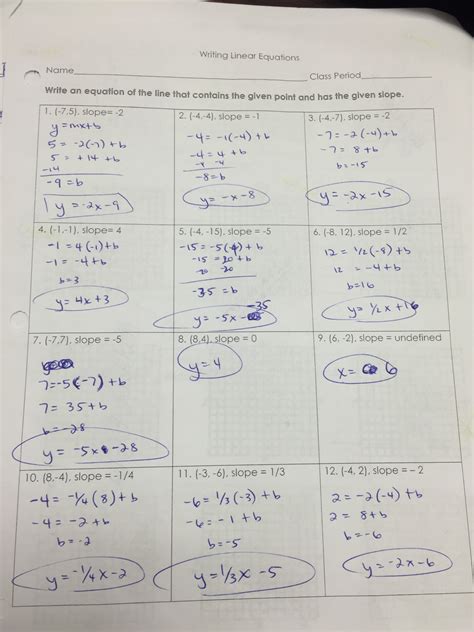 Writing Linear Equations
Name
Class Period
Write an equation of the line that contains the given point and has the given slope.
1. (-7,5), slope= -2
y = mx+b
5 = -2(-7) + b
5 = +14 +b
-14
-9 = b
y = -2x-9
2. (-4,-4), slope = -1
-4 = -1(-4) + b
-4 = 4 + b
-4 -4
-8 = b
y = -x-8
3. (-4,-7), slope = -2
-7 = -2(-4)+b
-7 = 8 +b
b = -15
y = -2x-15
4. (-1,-1), slope= 4
-1 = 4(-1)+b
-1 = -4+b
b=3
y = 4x+3
5. (-4, -15), slope = -5
-15 = -5(4) + b
-15 = 20 +b
-20 -20
-35 = b
-35
y = -5x -
6. (-8, 12), slope = 1/2
12 = 1/2(-8) +b
12 = -4+b
b=16
y = 1/2 x + 16
7. (-7,7), slope = -5
7=-5(-7) +b
7= 35+b
b = -28
y = -5x -28
8. (8,4), slope = 0
y=4
9. (6, -2), slope = undefined
x = 6
10. (8,-4), slope = -1/4
-4 = -1/4(8)+b
-4 = -2 +b
b = -2
y = -1/4 x -2
11. (-3, -6), slope = 1/3
-6 = 1/3(-3) +b
-6 = -1 +b
b = -5
y = 1/3 x -5
12. (-4, 2), slope = – 2
2 = -2(-4) +b
2 = 8+b
b=-6
y = -2x-6